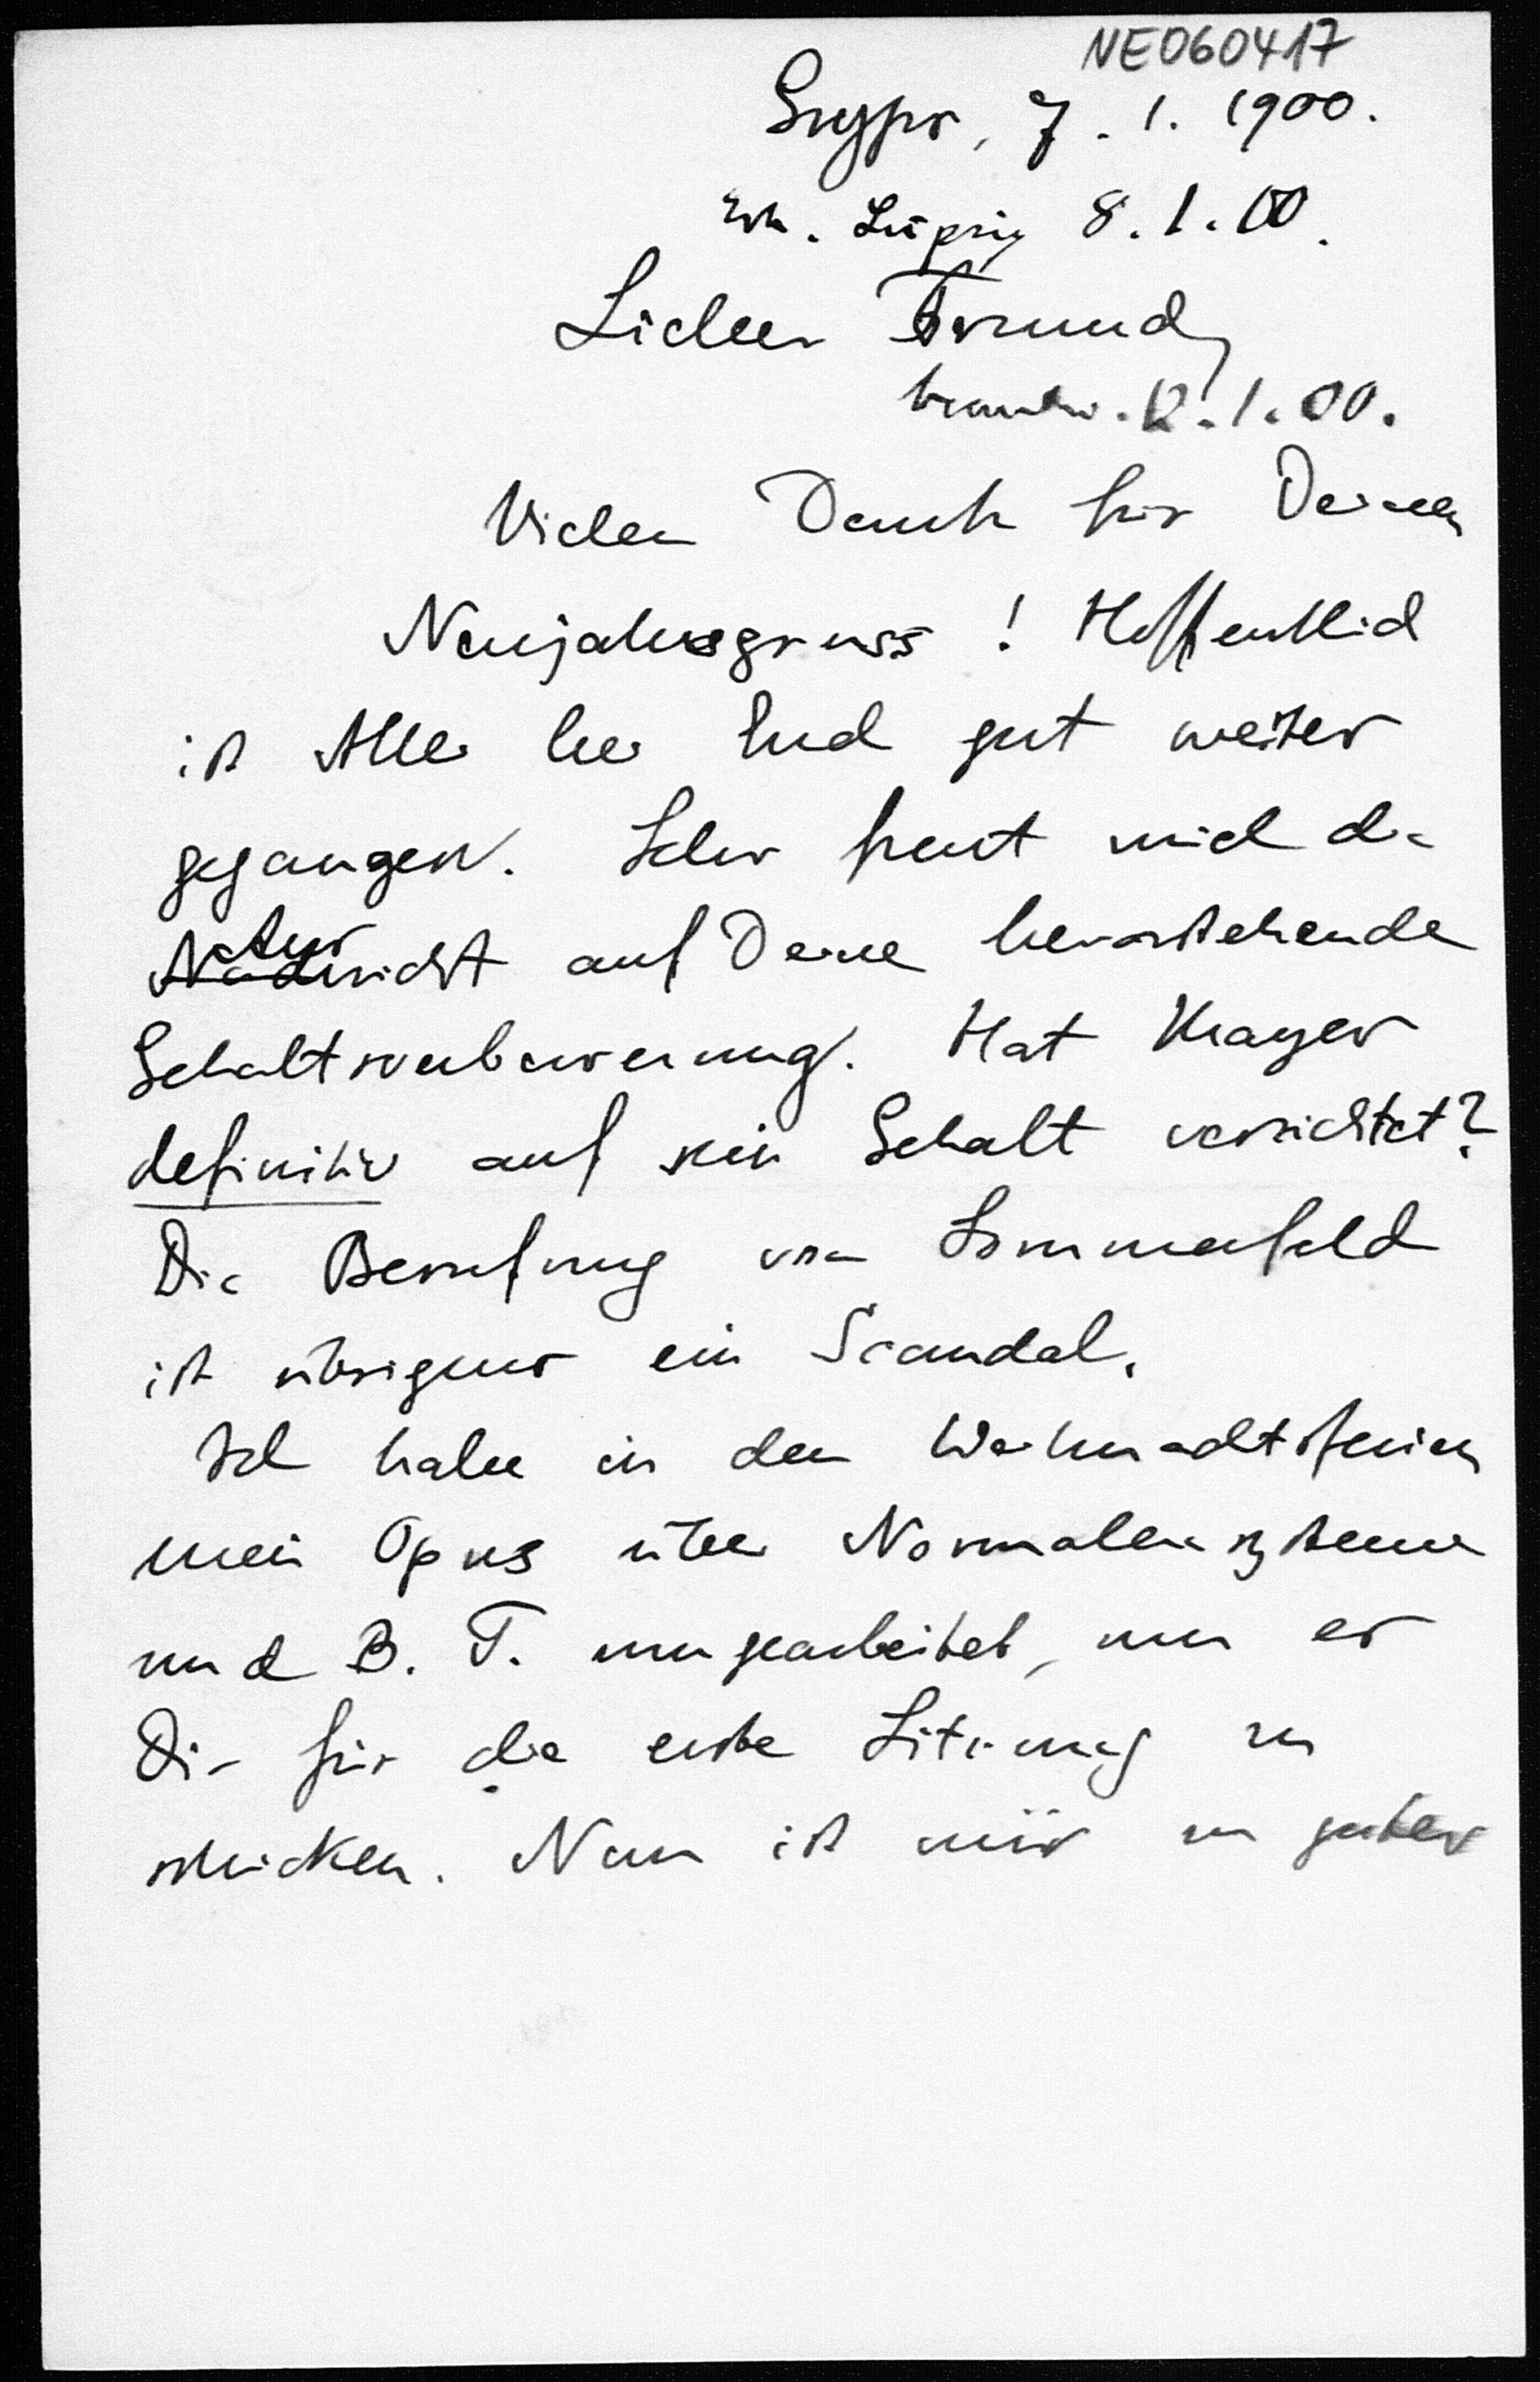 NE060417
Grypsw, 7. 1. 1900.
Erh. Leipzig 8. 1. 00.
Lieber Freund,
beantw. 12. 1. 00.
Vielen Dank für Deinen
Neujahrsgruss! Hoffentlich
ist Alles bei Euch gut weiter
gegangen. Sehr freut mich die
Aussicht auf Deine bevorstehende
Gehaltsverbesserung. Hat Mayer
definitiv auf sein Gehalt verzichtet?
Die Berufung von Sommerfeld
ist übrigens ein Scandal.
Ich habe in den Weihnachtsferien
mein Opus über Normalensysteme
und B. T. umgearbeitet, um es
Dir für die erste Sitzung zu
schicken. Nun ist mir zu guter